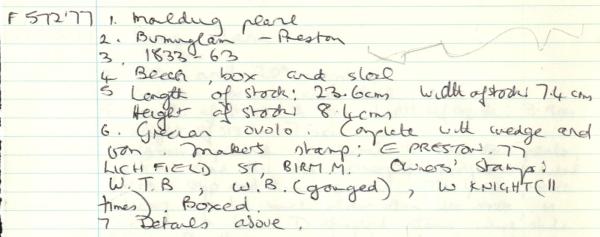 F 572'77 1. Moulding plane
2. Birmingham - Preston
3. 1833-63
4 Beech, box and steel
5 Length of stock: 23.6cms Width of stock: 7.4 cms
Height of stock: 8.4cms
6. Grecian ovolo. Complete with wedge and
iron. Makers stamp: E PRESTON. 77
LICHFIELD ST, BIRM M. Owners' stamps:
W.T.B, W.B. (gouged), W KNIGHT (11
times). Boxed.
7 Details above.